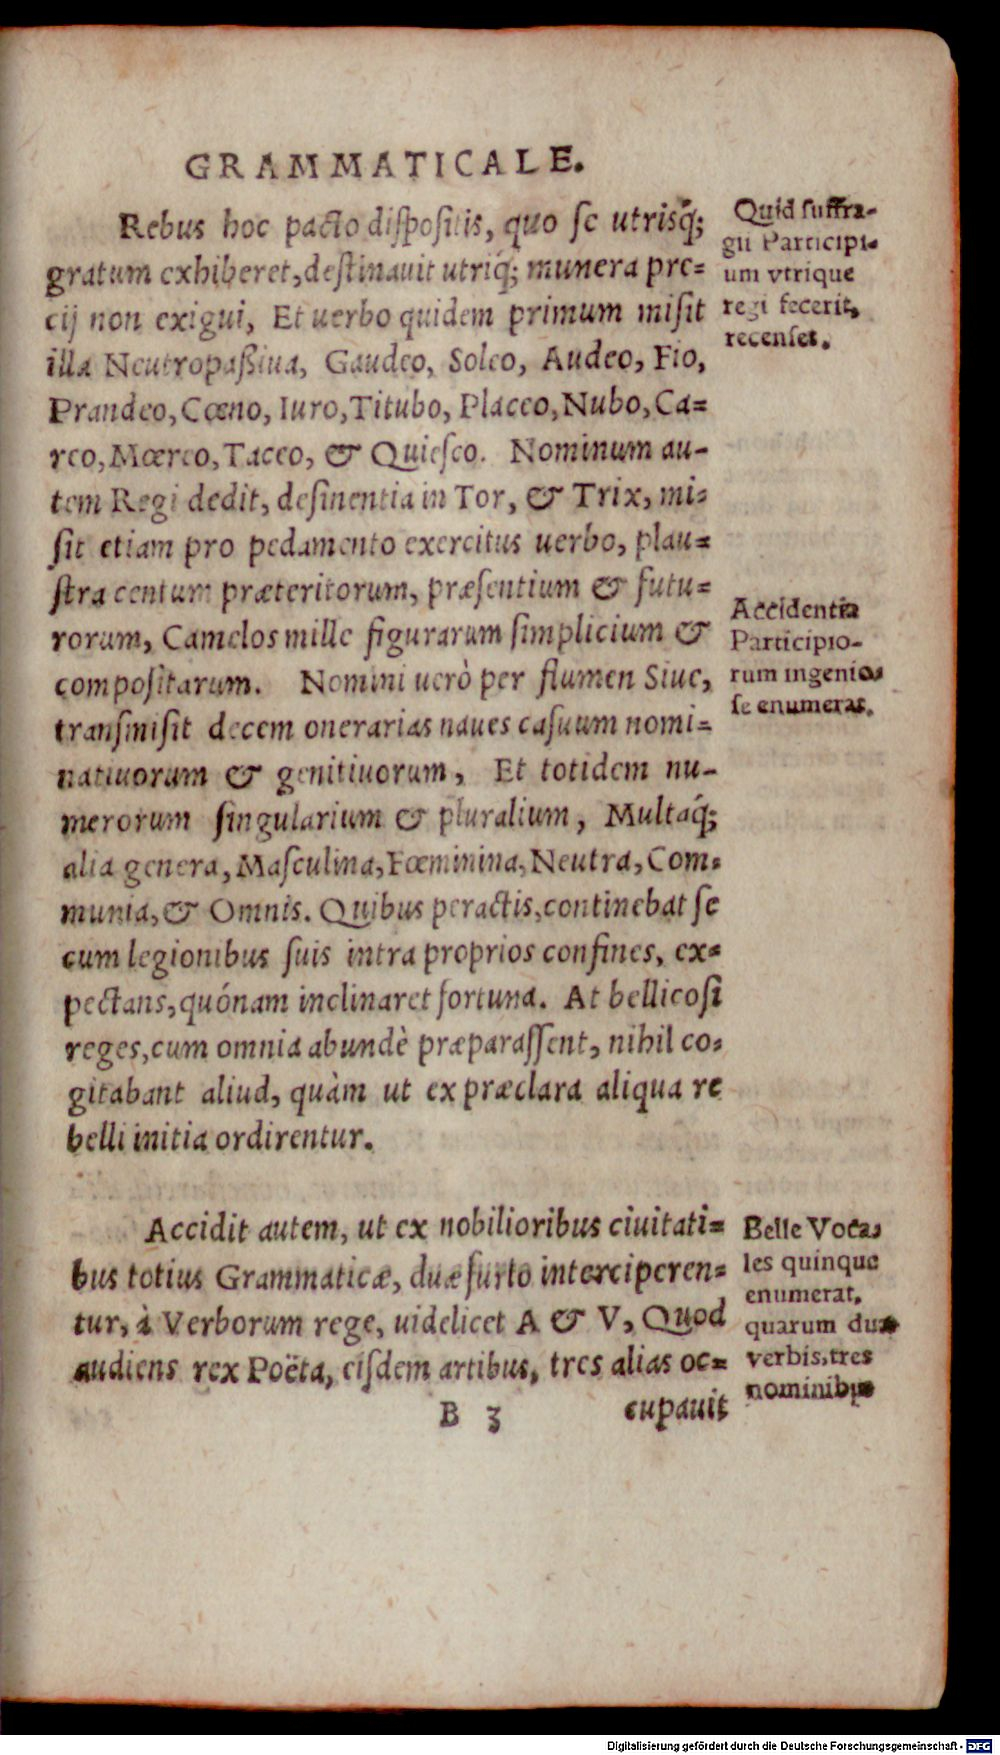 GRAMMATICALE.
Rebus hoc pacto diſpoſitis, quo ſe utrisq́;
gratum exhiberet, deſtinauit utriq́; munera pre=
cij non exigui, Et uerbo quidem primum miſit
illa Neutropaßiua, Gaudeo, Soleo, Audeo, Fio,
Prandeo, Cœno, Iuro, Titubo, Placeo, Nubo, Ca=
reo, Mœreo, Taceo, & Quieſco. Nominum au-
tem Regi dedit, deſinentia in Tor, & Trix, mi=
ſit etiam pro pedamento exercitus uerbo, plau=
ſtra centum præteritorum, præſentium & futu=
rorum, Camelos mille figurarum ſimplicium &
compoſitarum. Nomini uerò per flumen Siue,
tranſmiſit decem onerarias naues caſuum nomi=
natiuorum & genitiuorum, Et totidem nu-
merorum ſingularium & pluralium, Multaq́;
alia genera, Maſculina, Fœminina, Neutra, Com=
munia, & Omnis. Quibus peractis, continebat ſe
cum legionibus ſuis intra proprios confines, ex=
pectans, quónam inclinaret fortuna. At bellicoſi
reges, cum omnia abundè præparaſſent, nihil co=
gitabant aliud, quàm ut ex præclara aliqua re
belli initia ordirentur.
Accidit autem, ut ex nobilioribus ciuitati=
bus totius Grammaticæ, duæ furto interciperen=
tur, à Verborum rege, uidelicet A & V, Quod
audiens rex Poëta, eiſdem artibus, tres alias oc=
B 3 cupauit
Quid ſuffra-
gii Participi-
um vtrique
regi fecerit,
recenſet.
Accidentia
Participio-
rum ingenio
ſe enumerat.
Belle Voca-
les quinque
enumerat,
quarum duæ
verbis, tres
nominibus
Digitalisierung gefördert durch die Deutsche Forschungsgemeinschaft - DFG